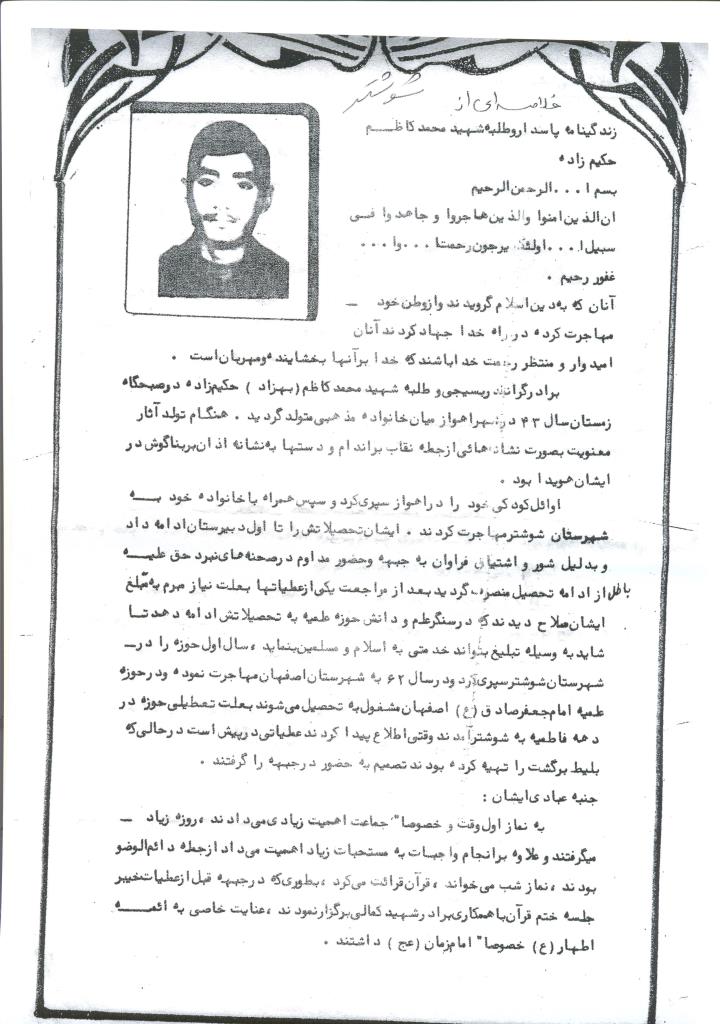 خلاصه‌ای از
شوشتر
زندگینامه پاسدار و طلبه شهید محمد کاظم
حکیم زاده
بسم ا... الرحمن الرحیم
ان الذین امنوا والذین هاجروا و جاهدوا فسی
سبیل ا... اولئک یرجون رحمت ا... وا...
غفور رحیم .
آنان که به دین اسلام گرویدند و از وطن خود
مهاجرت کرده در راه خدا جهاد کردند آنان
امیدوار و منتظر رحمت خدا باشند که خدا برآنها بخشاینده و مهربان است .
برادر گرانقدر بسیجی و طلبه شهید محمد کاظم (بهزاد) حکیم زاده در صبحگاه
زمستان سال ۴۳ در شهر اهواز میان خانواده مذهبی متولد گردید . هنگام تولد آثار
معنویت بصورت نشانه هائی از جمله نقاب بر اندام و دستها به نشانه اذان بر بناگوش در
ایشان هویدا بود .
اوائل کودکی خود را در اهواز سپری کرد و سپس همراه با خانواده خود به
شهرستان شوشتر مهاجرت کردند . ایشان تحصیلاتش را تا اول دبیرستان ادامه داد
و بدلیل شور و اشتیاق فراوان به جبهه وحضور مداوم در صحنه های نبرد حق علیه
باطل از ادامه تحصیل منصرف گردید بعد از مراجعت یکی از عملیاتها بعلت نیاز مبرم به مبلغ
ایشان صلاح دیدند که در سنگر علم و دانش حوزه علمیه به تحصیلاتش ادامه دهد تا
شاید به وسیله تبلیغ بتواند خدمتی به اسلام و مسلمین بنماید ، سال اول حوزه را در
شهرستان شوشتر سپری کرد و در سال ۶۲ به شهرستان اصفهان مهاجرت نموده و در حوزه
علمیه امام جعفر صادق (ع) اصفهان مشغول به تحصیل می شوند بعلت تعطیلی حوزه در
دهه فاطمیه به شوشتر آمدند وقتی اطلاع پیدا کردند عملیاتی در پیش است در حالی که
بلیط برگشت را تهیه کرده بودند تصمیم به حضور در جبهه را گرفتند .
جنبه عبادی ایشان :
به نماز اول وقت و خصوصا" جماعت اهمیت زیادی می دادند ، روزه زیاد
میگرفتند و علاوه بر انجام واجبات به مستحبات زیاد اهمیت می داد از جمله دائم الوضو
بودند ، نماز شب می خواند ، قرآن قرائت می کرد ، بطوری که در جبهه قبل از عملیات خیبر
جلسه ختم قرآن با همکاری برادر شهید کمالی برگزار نمودند ، عنایت خاصی به ائمه
اطهار (ع) خصوصا" امام زمان (عج) داشتند .